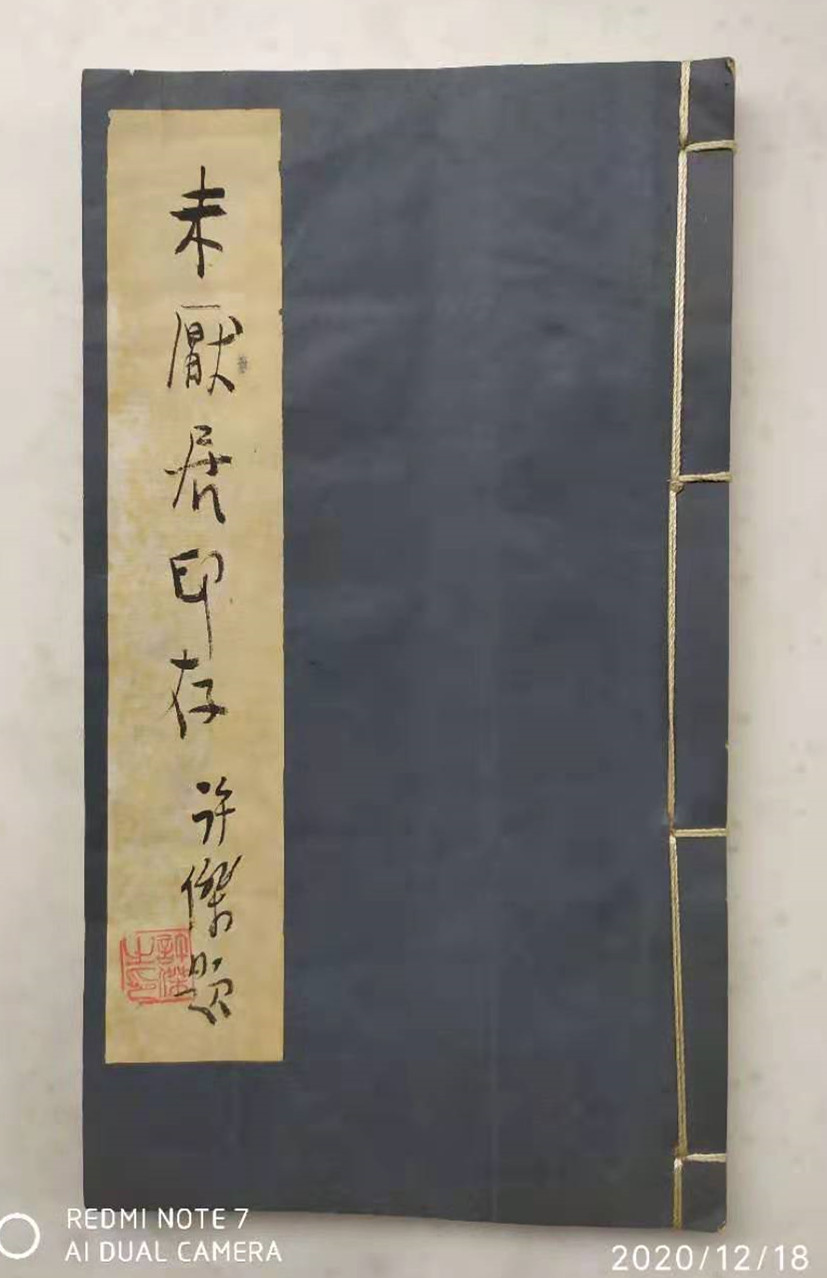 未厭居印存
许傑署
許傑之印
REDMI NOTE 7
AI DUAL CAMERA
2020/12/18